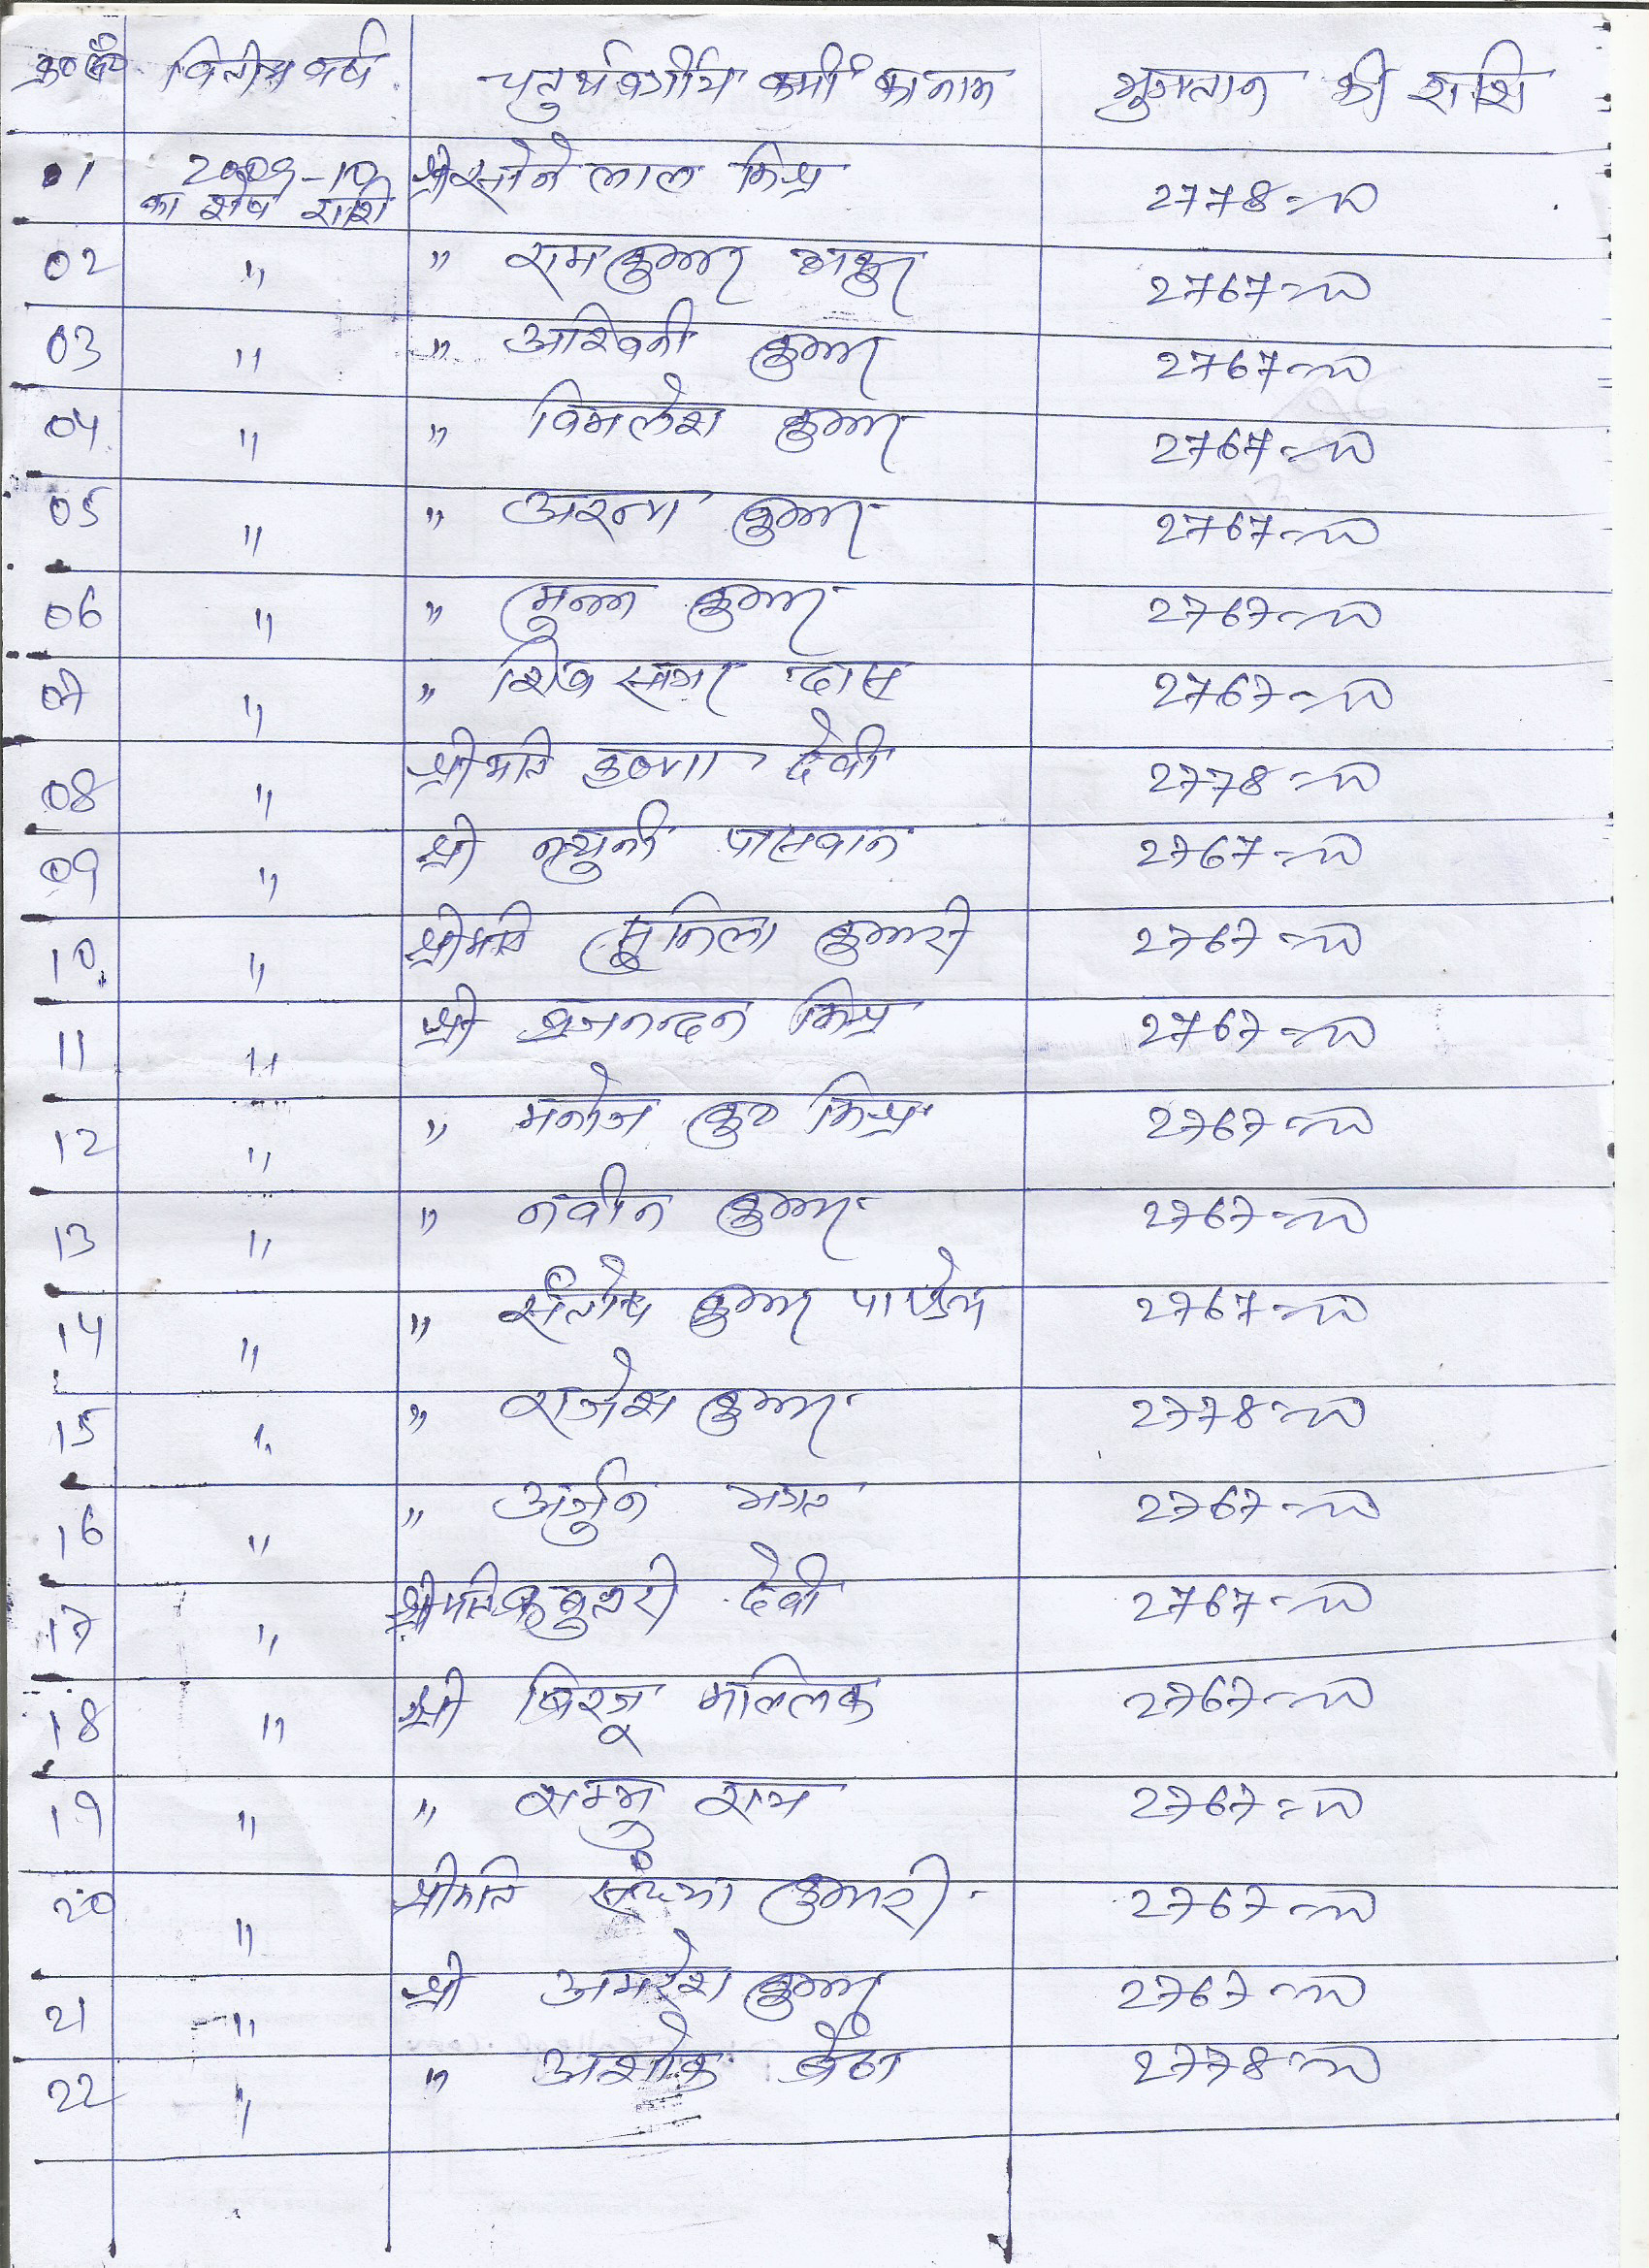 क्र० सं० वितीय वर्ष चतुर्थवर्गीय कर्मी का नाम भुगतान की राशि
01 2009-10 श्री सोने लाल मिश्र 2778=00
का शेष राशि
02 " " राम कुमार ठाकुर 2767=00
03 " " अश्विनी कुमार 2767=00
04 " " विमलेश कुमार 2767=00
05 " " कुमार 2767=00
06 " " मुन्ना कुमार 2767=00
07 " " शिव सागर दास 2767=00
08 " श्रीमति कृष्णा देवी 2778=00
09 " श्री नथुनी पासवान 2767=00
10 " श्रीमति सुनिला कुमारी 2767=00
11 " श्री ब्रजनन्दन मिश्र 2767=00
12 " " मनोज कु० मिश्र 2767=00
13 " " नवीन कुमार 2767=00
14 " " संतोष कुमार पाण्डेय 2767=00
15 " " राजेश कुमार 2778=00
16 " " अर्जुन भगत 2767=00
17 " श्रीमति कबुतरी देवी 2767=00
18 " श्री बिरजू मल्लिक 2767=00
19 " " शम्भु राय 2767=00
20 " श्रीमति संध्या कुमारी 2767=00
21 " श्री अमरेश कुमार 2767=00
22 " " अशोक बैठा 2778=00